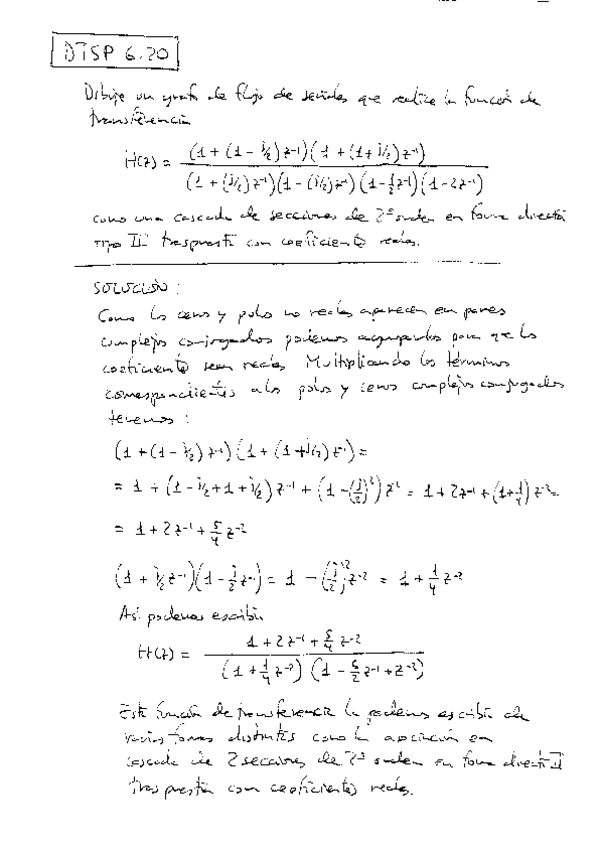 DTSP 6.20
Dibuje un grafo de flujo de señales que realice la función de
transferencia
H(z) = (1 + (1 - j/2) z⁻¹)(1 + (1 + j/2) z⁻¹) / (1 + (j/2) z⁻¹)(1 - (j/2) z⁻¹)(1 - 1/2 z⁻¹)(1 - 2z⁻¹)
como una cascada de secciones de 2º orden en forma directa
tipo II traspuesta con coeficientes reales.
SOLUCIÓN:
Como los ceros y polos no reales aparecen en pares
complejos conjugados podemos agruparlos para que los
coeficientes sean reales. Multiplicando los términos
correspondientes a los polos y ceros complejos conjugados
tenemos:
(1 + (1 - j/2) z⁻¹)(1 + (1 + j/2) z⁻¹) =
= 1 + (1 - j/2 + 1 + j/2) z⁻¹ + (1 - (j/2)²) z⁻² = 1 + 2z⁻¹ + (1 + 1/4) z⁻² =
= 1 + 2z⁻¹ + 5/4 z⁻²
(1 + j/2 z⁻¹)(1 - j/2 z⁻¹) = 1 - (j/2)² z⁻² = 1 + 1/4 z⁻²
Así podemos escribir
H(z) = 1 + 2z⁻¹ + 5/4 z⁻² / (1 + 1/4 z⁻²)(1 - 5/2 z⁻¹ + z⁻²)
Esta función de transferencia la podemos escribir de
varias formas distintas como la asociación en
cascada de 2 secciones de 2º orden en forma directa II
traspuesta con coeficientes reales.